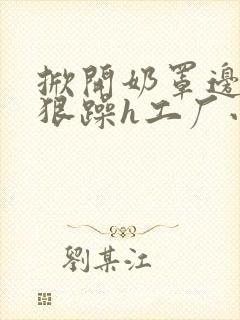 掀開奶罩邊
狠躁h工厂
劉某江